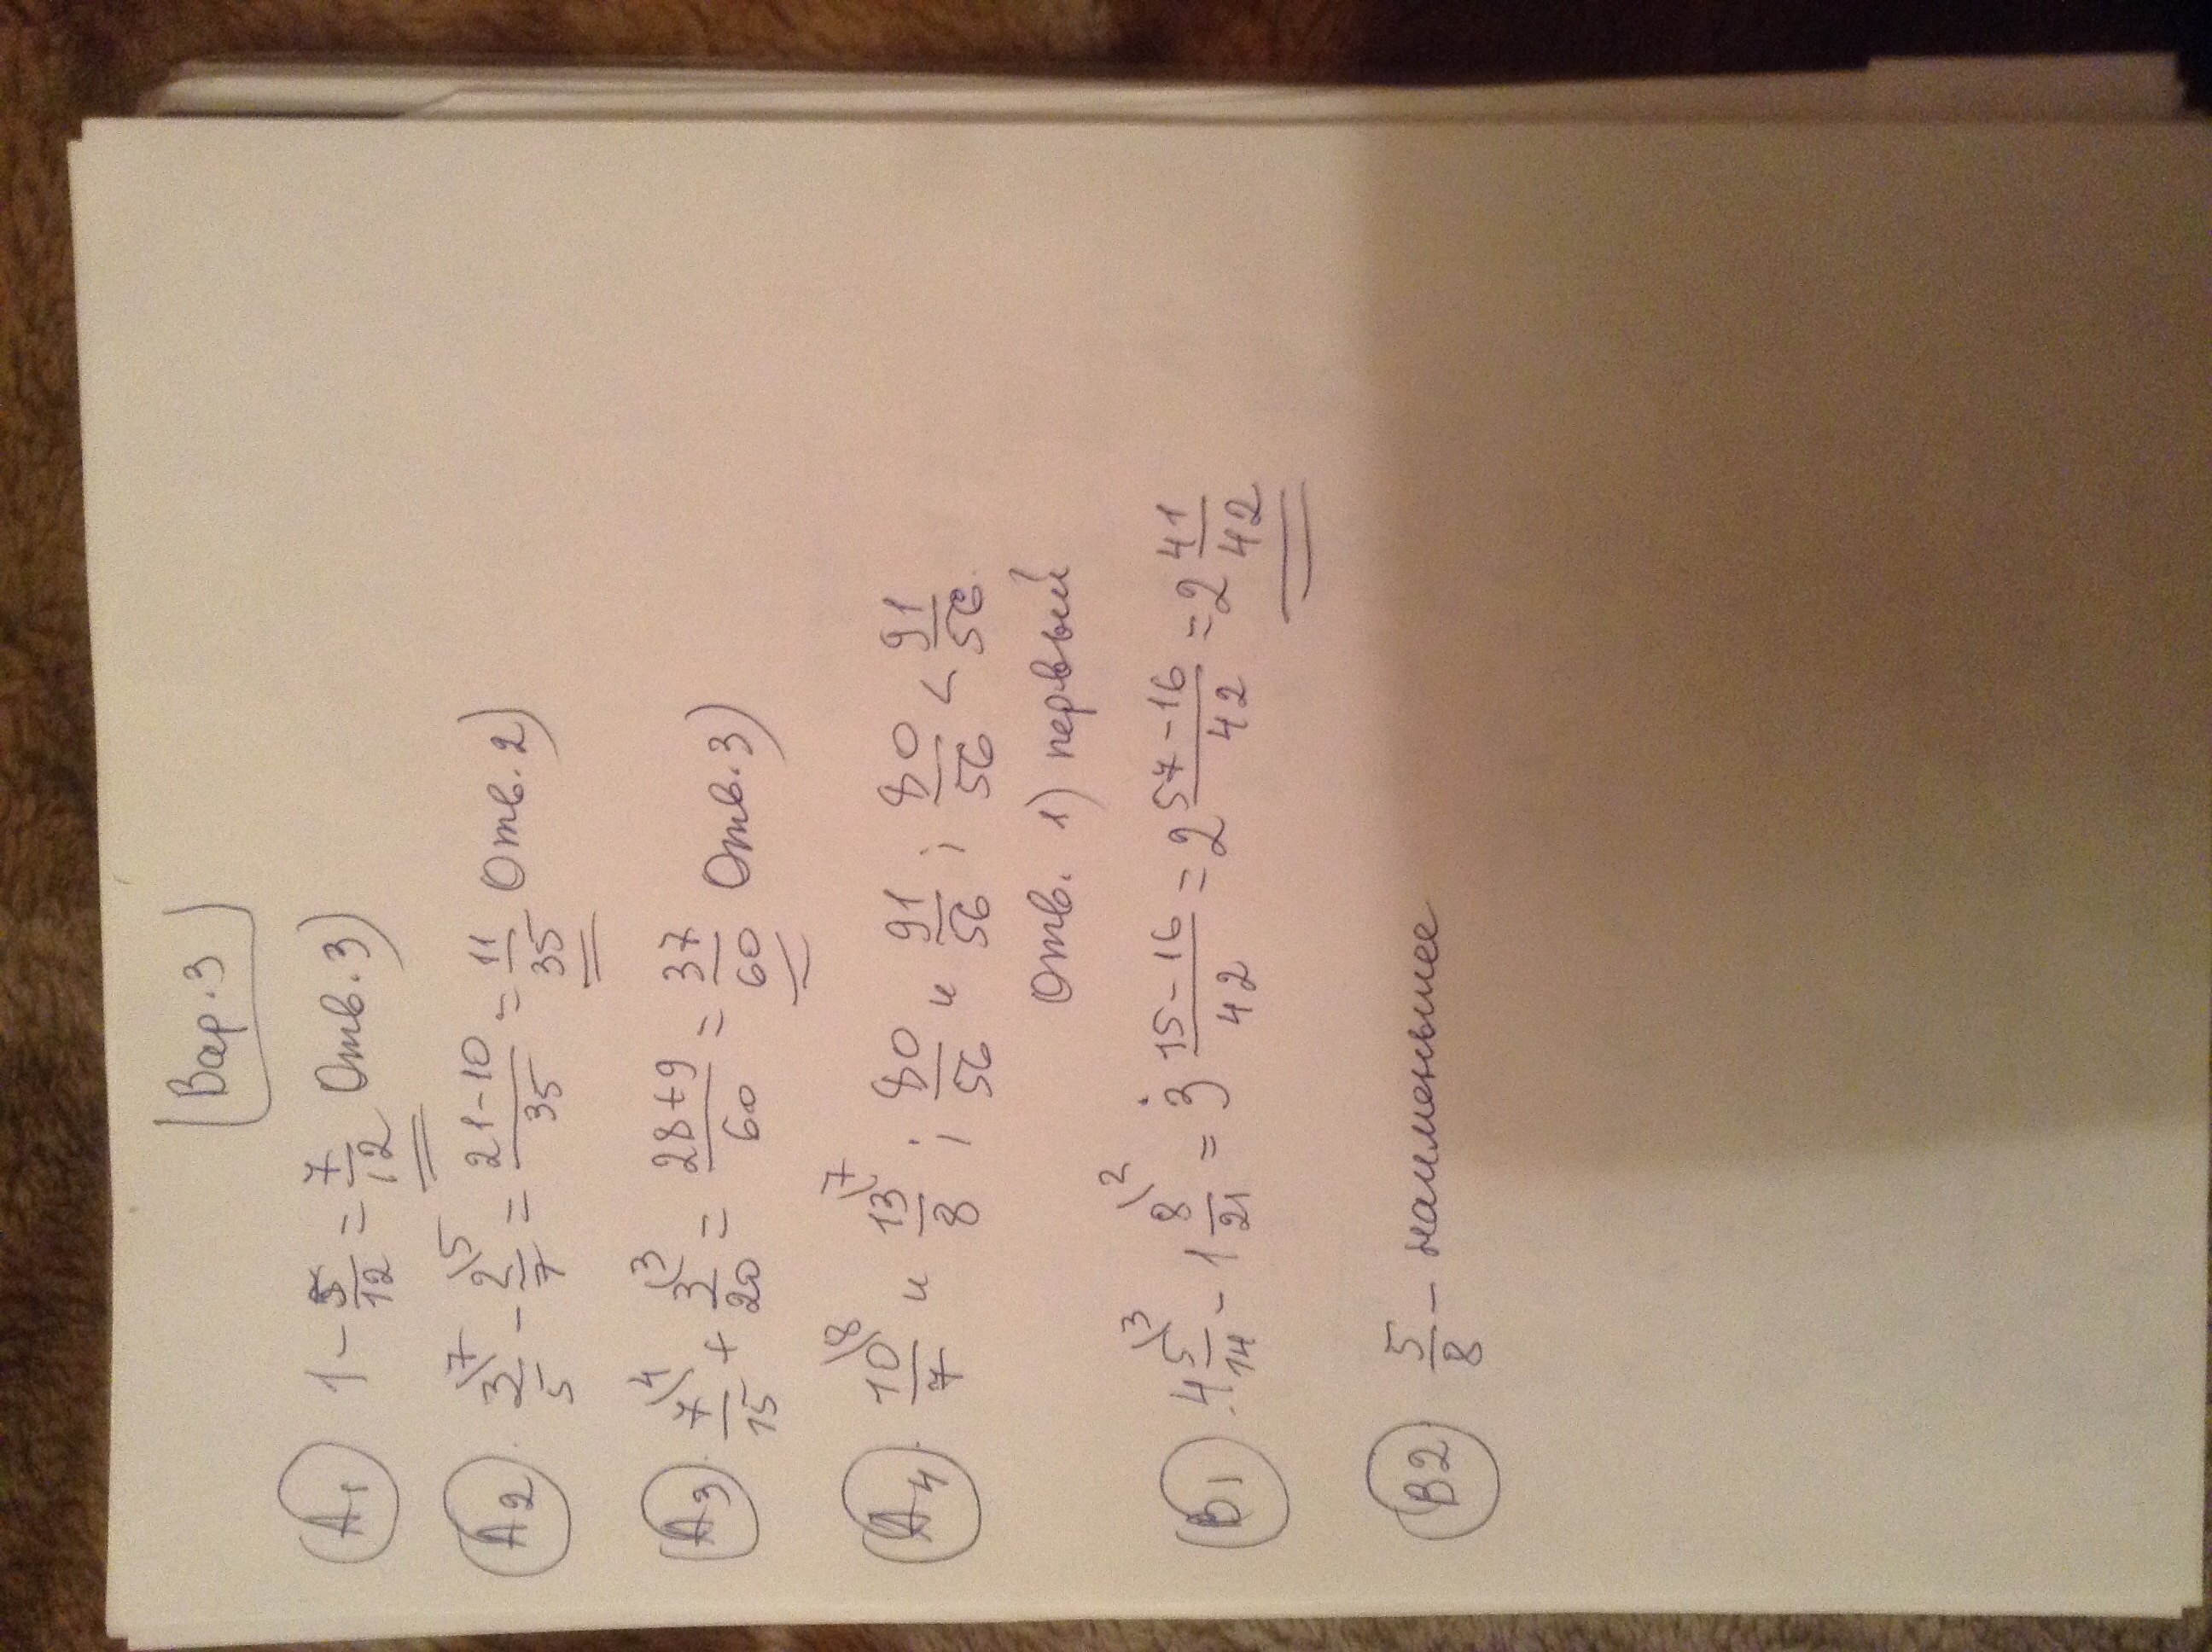 Вар.3
А1 1 - 5/12 = 7/12 Отв. 3)
А2. 3\7/5 - 2\5/7 = 21-10/35 = 11/35 Отв. 2)
А3. 7\4/15 + 3\3/20 = 28+9/60 = 37/60 Отв. 3)
А4. 10\8/7 и 13\7/8 ; 80/56 и 91/56 ; 80/56 < 91/56.
Отв. 1) первый
В1. 4 5\3/14 - 1 8\2/21 = 3 15-16/42 = 2 57-16/42 = 2 41/42
В2 5/8 - наименьшее